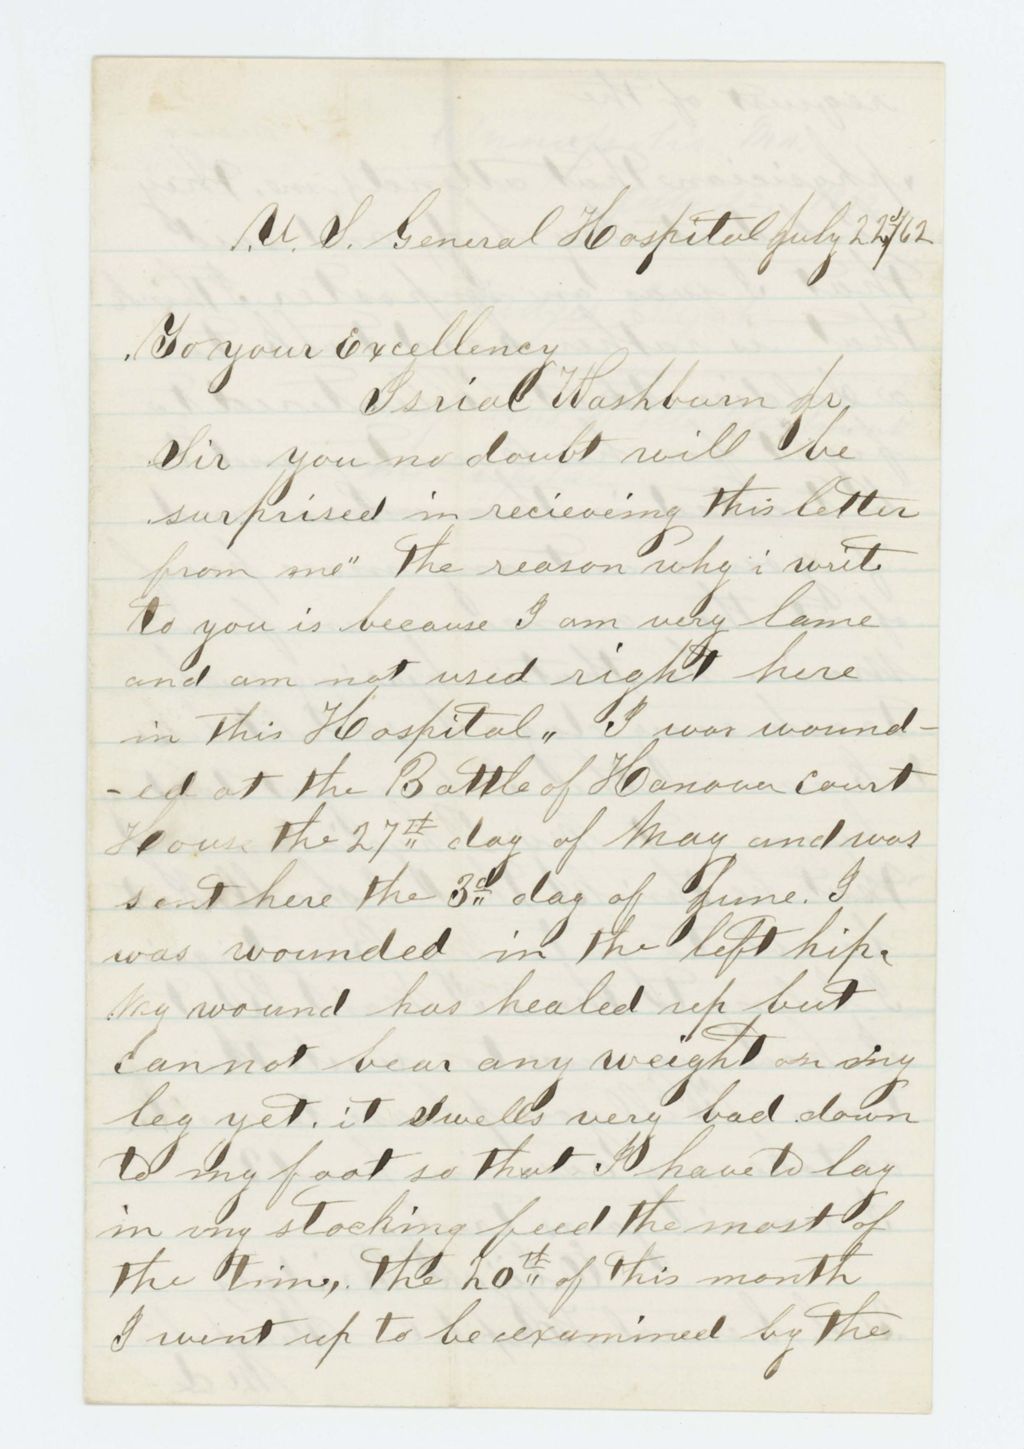 U. S. General Hospital July 22d/62
To your Excellency
Isrial Washburn Jr
Sir you no doubt will be
surprised in recieveing this letter
from me" The reason why i write
to you is because I am very lame
and am not used right here
in this Hospital,, I was wound-
-ed at the Battle of Hanover Court
House the 27th day of May and was
sent here the 3d day of June. I
was wounded in the left hip.
My wound has healed up but
Cannot bear any weight on my
leg yet. it swells very bad down
to my foot so that I have to lay
in my stocking feed the most of
the time,. The 20th of this month
I went up to be aexamined by the